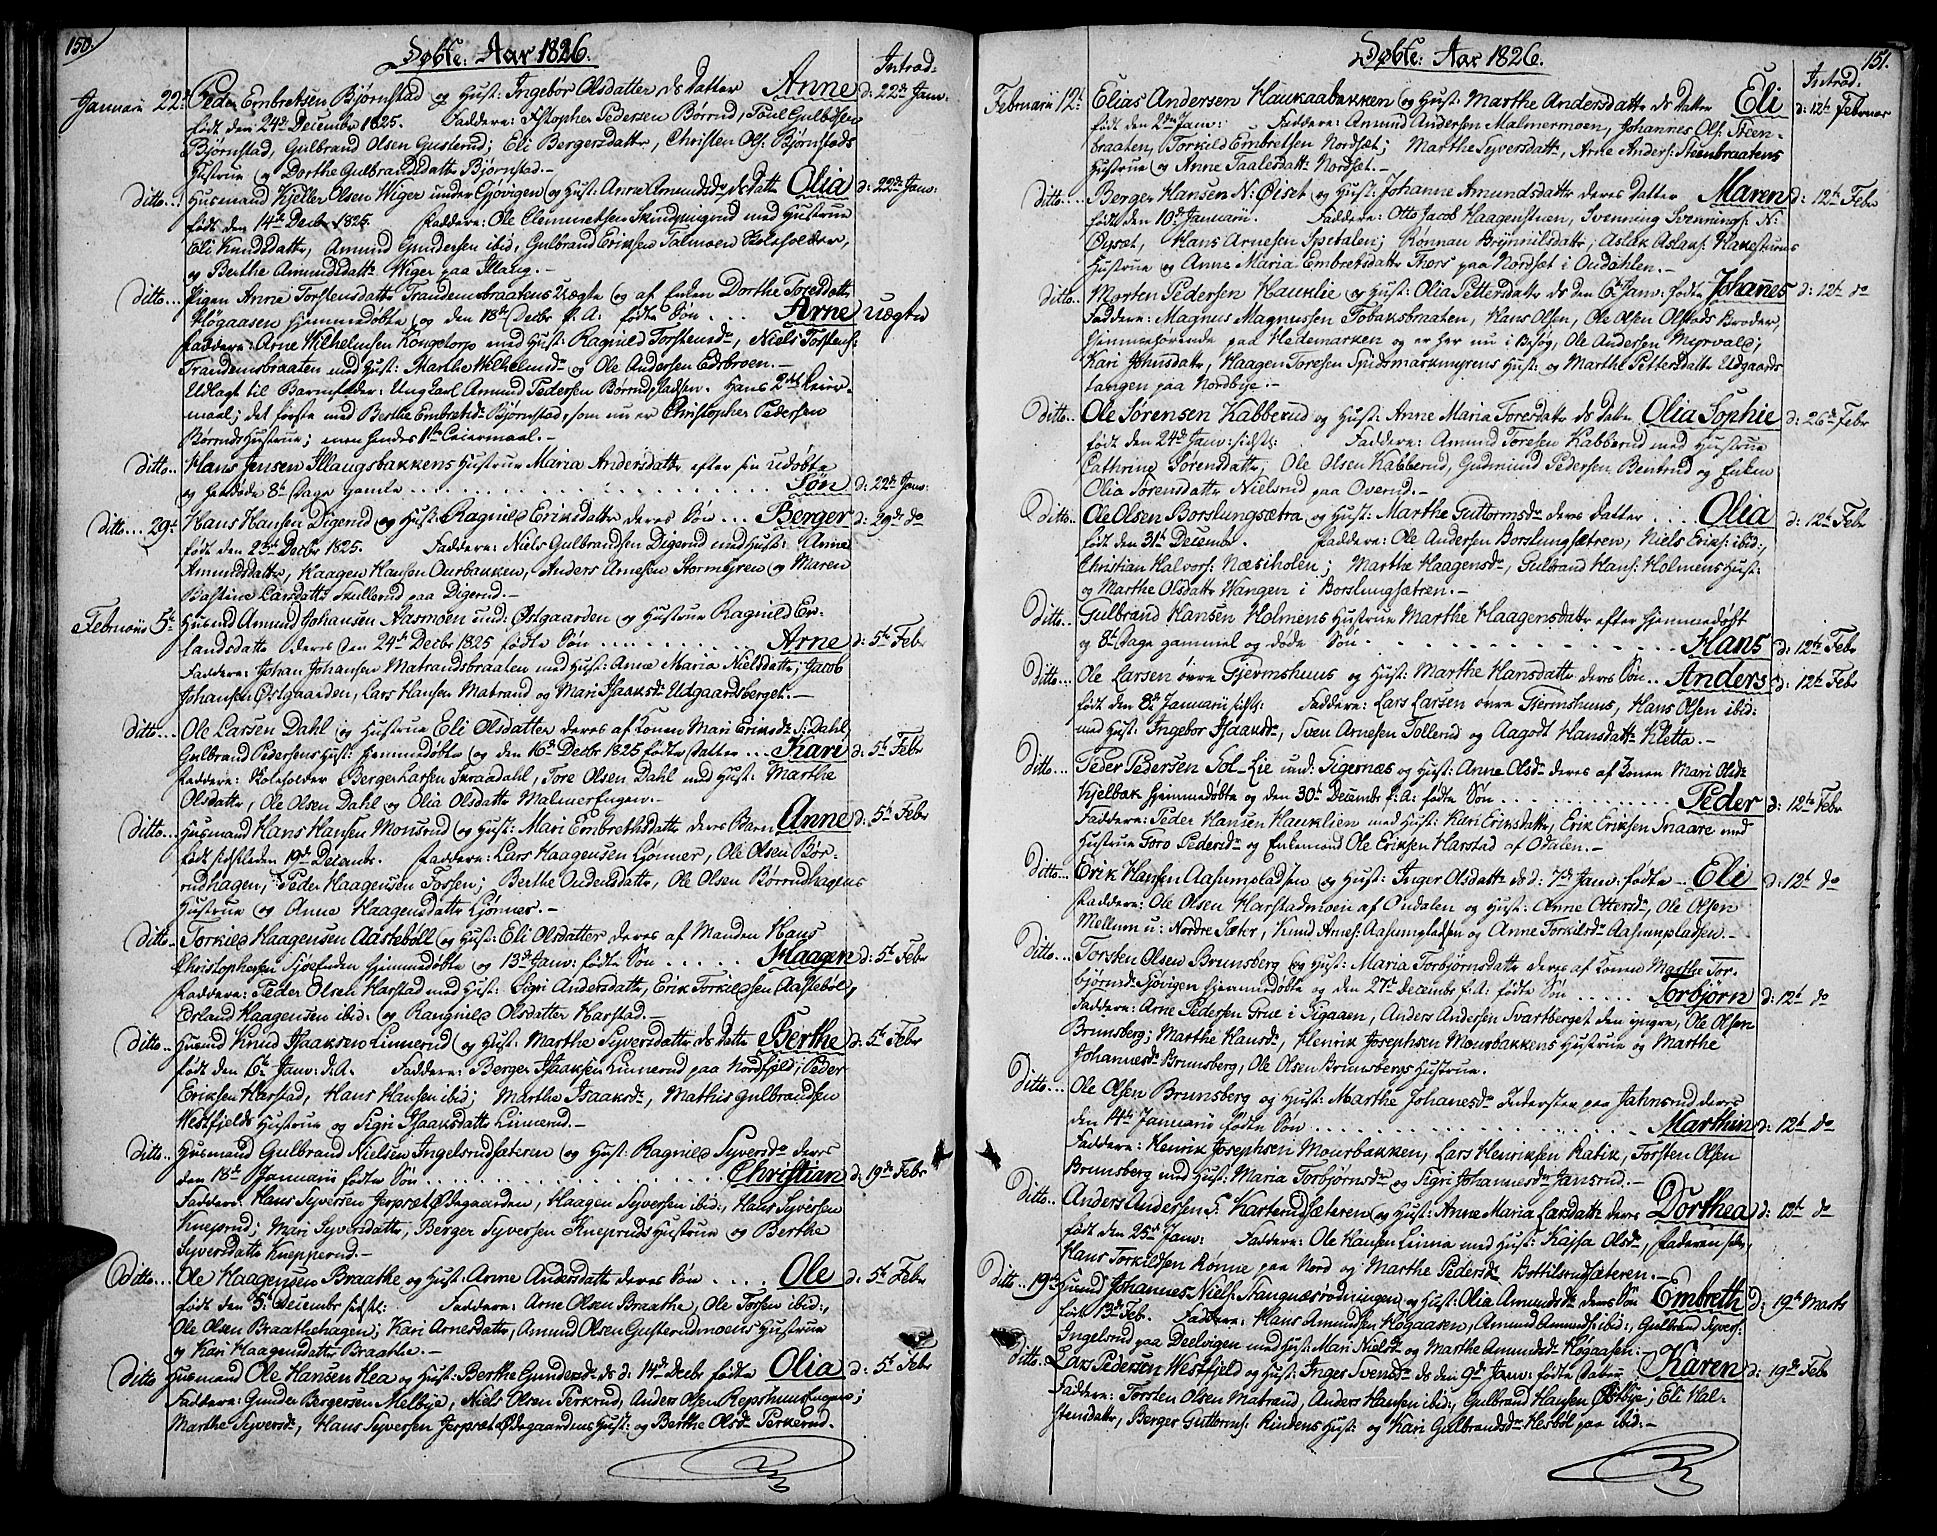 150.
Døbte: Aar 1826.
Introd:
Januarii 22de Peder Embretsen Bjørnstad og Hust: Ingebor Olsdatter ds Datter Anne d: 22de Janv:
født den 24de Decembr 1825. Faddere: Christopher Pedersen Børrud, Poul Gulbdsen
Bjørnstad, Gulbrand Olsen Gusterud; Eli Bergersdattr, Christen Ols: Bjørnstads
Hustrue og Dorthe Gulbrandsdattr Bjørnstad.-
Ditto... Husmand Kjeller Olsen Wiger under Gjøvigen og Hust: Anne Amundsdr ds Dattr Olia d: 22de Janv:
født den 14de Decbr 1825. Faddere: Ole Clemmetsen med Hustrue
Eli Knudsdattr, Amund Gundersen ibid, Gulbrand Eriksen Talmoen Skoleholder,
og Berthe Amundsdattr Wiger paa Illaug.-
Ditto... Pigen Anne Torstensdattr Traudemsbraatens Uægte og af Enken Dorthe Toresdattr
Høgaasen hjemmedøbte og den 18de Decbr f: A: fødte Søn ... Arne Uægte
Faddere: Arne Wilhelmsen Kongetorp med Hust: Ragnild Torstensdr, Niels Torstens:
Traudemsbraaten med Hust: Marthe Wilhelmsdr og Ole Andersen Edsbroen.-
Udlagt til Barnefader: Ungkarl Amund Pedersen Børrudstadsen. Hans 2det Leier-
maal; det første med Berthe Embretsdr Bjørnstad, som nu er Christopher Pedersen
Børruds Hustrue; men hendes 1ste Leiermaal.-
Ditto.. Hans Jensen Illaugsbakkens Hustrue Maria Andersdattr efter sin udøbte
og hendøde 8te Dage gamle ... Søn d: 22de Janv:
Ditto... 29de Hans Hansen Digerud og Hust: Ragnild Eriksdattr deres Søn ... Berger d: 29de do
født den 23de Decbr 1825. Faddere: Niels Gulbrandsen Digerud med Hust: Anne
Amundsdattr, Haagen Hansen Ourbakken, Anders Arnesen Stormyren og Maren
Bastine Larsdattr Skullerud paa Digerud.-
Februarii 5te Husmd Amund Johansen Aasmoen und: Østgaarden og Hustrue Ragnild Er-
landsdattr deres den 24de Decbr 1825 fødte Søn ... Arne d: 5te Febr
Faddere: Johan Johansen Matrandsbraaten med Hust: Anne Maria Nielsdattr, Jacob
Johansen Østgaarden, Lars Hansen Matrand og Mari Isaaksdr Udgaardsberget.-
Ditto.. Ole Larsen Dahl og Hustrue Eli Olsdatter deres af Konen Mari Eriksdr S: Dahl
Gulbrand Pedersens Hust: hjemmedøbte og den 16de Decbr 1825 fødte Datter ... Kari d: 5te Febr
Faddere: Skoleholder Berger Larsen Skrasdahl, Tore Olsen Dahl med Hust: Marthe
Olsdattr, Ole Olsen Dahl og Olia Olsdattr Malmer Engen.-
Ditto... Husmand Hans Hansen Monsrud og Hust: Mari Embrethsdattr deres Barn Anne d: 5te Febr
født sidstleden 19de Decembr. Faddere: Lars Haagensen Lønner, Ole Olsen Bør-
rudhagen, Peder Haagensen Fossen; Berthe Andersdattr, Ole Olsen Børrudhagens
Hustrue og Anne Haagensdattr Lønner.-
Ditto.. Torkild Haagensen Aastebøll og Hust: Eli Olsdatter deres af Manden Hans
Christophersen Sjøefenden hjemmedøbte og 13de Janv: fødte Søn ... Haagen d: 5te Febr
Faddere: Peder Olsen Harstad med Hust: Sigri Andersdattr, Erik Torkildsen Aastebøl,
Erland Haagensen ibid: og Rangnild Olsdatter Harstad.-
Ditto.. Husmd Knud Isaaksen Linnerud og Hust: Marthe Syversdattr ds Dattr Berthe d: 5te Febr
født den 6te Janv: d: A: Faddere: Berger Isaaksen Linnerud paa Nordfjeld; Peder
Eriksen Harstad, Hans Hansen ibid; Marthe Isaaksdr, Mathis Gulbrandsen
Westfjelds Hustrue og Sigri Isaaksdattr Linnerud.-
Ditto.. Husmand Gulbrand Nielsen Ingelsrudsæteren og Hust: Ragnild Syversdr deres
den 18de Januarii fødte Søn ... Christian d: 19de Febr
Faddere: Hans Syversen Jerpset Ødegaarden, Haagen Syversen ibid:, Hans Syversen
Kneprud; Mari Syversdattr, Berger Syversen Kneprud Hustrue og Berthe
Syversdattr Knepperud.-
Ditto... Ole Haagensen Braathe og Hust: Anne Andersdattr deres Søn ... Ole d: 5te Febr
født den 5te Decembr sidstl: Faddere: Arne Olsen Braathe, Ole Torsen ibid:,
Ole Olsen Braathehagen; Kari Arnesdattr, Amund Olsen Gusterudmoens Hustrue
og Kari Haagensdattr Braathe.-
Ditto Husmand Ole Hansen Hea og Hust: Berthe Gundersdr ds d: 14de Decbr fødte Olia d: 5te Febr
Faddere: Gunder Bergersen Melbye, Niels Olsen Perkrud, Anders Olsen Repshuusengen;
Marthe Syversdr, Hans Syversen Jerpset Ødegaardens Hust: og Berthe Olsdr Perkerud.
151.
Døbte: Aar 1826.
Introd.
Februarii 12te Elias Andersen Haukaabakken og Hust: Marthe Andersdattr ds Datter Eli d: 12te Februar
født den 2den Janv: Faddere: Amund Andersen Malmermoen, Johannes Ols: Steen-
braaten, Torkild Embretsen Nordsæt; Marthe Syversdattr, Arne Anders: Steenbraatens
Hustrue og Anne Taalesdattr Nordset.-
Ditto.... Berger Hansen N: Øiset og Hust: Johanne Amundsdattr deres Datter Maren d: 12te Febr
født den 10de Januarii. Faddere: Otto Jacob Haagenstuen, Svenning Svennings: N:
Øyset, Hans Arnesen Spetalen; Rønnau Brynnilsdattr, Aslak Aslaks: Hakestuens
Hustrue og Anne Maria Embretsdattr Thors paa Nordset i Oudahlen.-
Ditto.. Morten Pedersen Hauklie og Hust: Olia Pettersdattr ds den 6te Janv: fødte Johanes d: 12te do
Faddere: Magnus Magnussen Tobaksbraaten, Hans Olsen, Ole Olsen Olstads Broder,
hjemmehørende paa Hedemarken og er her nu i Besøg, Ole Andersen Myrvold;
Kari Johnsdattr, Haagen Toresen Spidsmarkmyrens Hust: og Marthe Pettersdattr Udgaards
tangen paa Nordbye.-
Ditto... Ole Sørensen Kabberud og Hust: Anne Maria Toresdattr ds Datter Olia Sophie d: 26de Febr
født den 24de Janv: sidstl: Faddere: Amund Toresen Kabberud med Hustrue
Cathrine Sørensdattr, Ole Olsen Kabberud, Gudmund Pedersen Bentrud og Enken
Olia Sørensdattr Nielsrud paa Overud.-
Ditto.. Ole Olsen Borslungsætra og Hust: Marthe Guttormsdr deres Datter ... Olia d: 12te Febr
født den 31te December. Faddere: Ole Andersen Borslungsætren, Niels Eriks: ibid:,
Christian Halvors: Næsiholen; Marthe Haagensdr, Gulbrand Hans: Holmens Hust:
og Marthe Olsdattr Wangen i Borslungsætren.-
Ditto.. Gulbrand Hansen Holmens Hustrue Marthe Haagensdattr efter hjemmedøbt
og 8te Dage gammel og døde Søn ... Hans d: 12te Febr
Ditto.. Ole Larsen øvre Gjermshuus og Hust: Marthe Hansdattr deres Søn.. Anders d: 12te Febr
født den 8de Januarii sidstl: Faddere: Lars Larsen øvre Gjermshuus, Hans Olsen ibid:
med Hust: Ingebor Isaaksdr, Sven Arnesen Tollerud og Aagodt Hansdattr Kletta.-
Ditto... Peder Pedersen Sol-Lie und: Sigernæs og Hust: Anne Olsdr deres af Konen Mari Olsdr
Kjelbak hjemmedøbte og den 30te Decembr f: A: fødte Søn ... Peder d: 12te Febr
Faddere: Peder Hansen Hauklien med Hust: Kari Eriksdattr, Erik Eriksen Snaare med
Hustrue Goro Pedersdr og Enkemand Ole Eriksen Harstad af Odalen.-
Ditto... Erik Hansen Aasumpladsen og Hust: Inger Olsdattr ds d: 7de Janv: fødte - Eli d: 12te do
Faddere: Ole Olsen Harstadmoen af Oudalen og Hust: Anne Ottersdr, Ole Olsen
Mellum u: Nordre Sæter, Knud Arnes: Aasumpladsen og Anne Torkildsdr Aasumpladsen.-
Ditto.. Torsten Olsen Brunsberg og Hust: Maria Torbjørnsdattr deres af Konen Marthe Tor-
bjørnsdr Sjøvigen hjemmedøbte og den 27de Decembr f: A: fødte Søn ... Torbjørn d: 12te do
Faddere: Arne Pedersen Grue i Sigaaen, Anders Andersen Svartberget den yngre, Ole Olsen
Brunsberg; Marthe Hansdr, Henrik Josephsen Mourbakkens Hustrue og Marthe
Johannesdr Brunsberg, Ole Olsen Brunsbergs Hustrue.
Ditto... Ole Olsen Brunsberg og Hust: Marthe Johanesdr Inderster paa Jahnsrud deres
den 14de Januarii fødte Søn ... Marthin d: 12te do
Faddere: Henrik Josephsen Mourbakken, Lars Henriksen Ratik, Torsten Olsen
Brunsberg med Hust: Maria Torbjørnsdr og Sigri Johannesdr Jansrud.-
Ditto... Anders Andersen S. Karterudsæteren og Hust: Anne Maria Larsdattr deres Dorthea d: 12te do
født den 25de Janv: Faddere: Ole Hansen Linna med Hust: Kajsa Olsdr, Faderen selv,
Hans Torkildsen Rønne paa Nord og Marthe Pedersdr Bottilsrudsæteren.-
Ditto.. 19de Husmd Johannes Niels: Strangnæsrødningen og Hust: Olia Amundsdr deres Søn Embreth d: 19de Marts
født 13de Feb. Faddere: Hans Amundsen Høgaasen, Amund Amunds: ibid:, Gulbrand Syvers:
Ingelsrud paa Deelvigen med Hust: Mari Nielsdr og Marthe Amundsdr Høgaasen.-
Ditto.. Lars Pedersen Westfjeld og Hust: Inger Svensdr ds den 9de Janv: fødte Datter Karen d: 19de Feb
Faddere: Torsten Olsen Matrand, Anders Hansen ibid:, Gulbrand Hansen Østbye; Eli Hal-
stensdattr, Berger Guttorms: Rindens Hust: og Kari Gulbrandsdr Kesbøl paa ibid:-